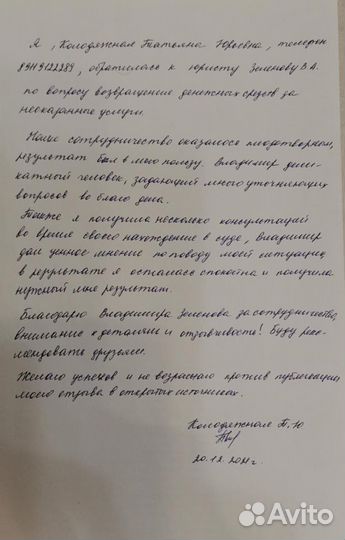 Я, Колодяжная Татьяна Юрьевна, телефон
89119122289, обратилась к юристу Зеленову В.А.
по вопросу возвращения денежных средств за
неоказанные услуги.
Наше сотрудничество оказалось плодотворным,
результат был в мою пользу. Владимир дели-
катный человек, задающий много уточняющих
вопросов во благо дела.
Также я получила несколько консультаций
во время своего нахождения в суде, Владимир
дал ценное мнение по поводу моей ситуации,
в результате я осталась спокойна и получила
нужный мне результат.
Благодарю Владимира Зеленова за сотрудничество,
внимание к деталям и отзывчивость! Буду реко-
мендовать друзьям.
Желаю успехов и не возражаю против публикации
моего отзыва в открытых источниках.
Колодяжная Т.Ю
20.12.2021г.
Avito